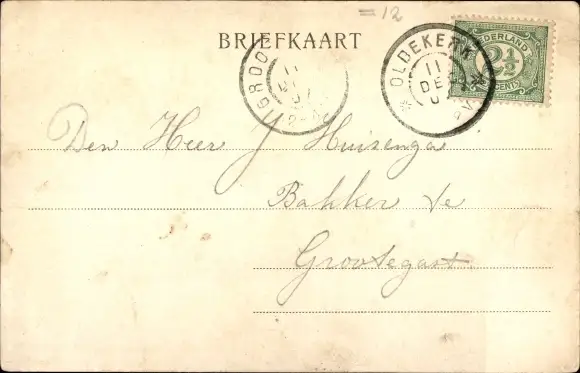 = 12
BRIEFKAART
OLDEKERK
11
DEC
NEDERLAND
2½
CENT
11
Den Heer J Huizenga
Bakker te
Grootegast